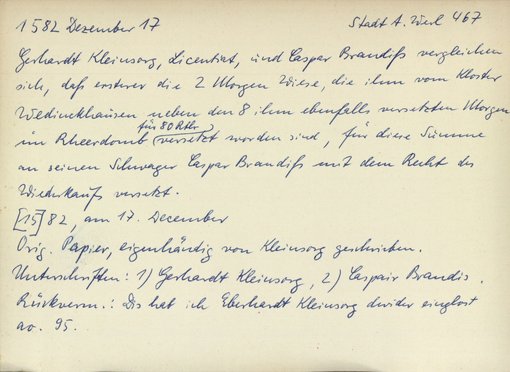 1582 Dezember 17 Stadt A. Werl 467
Gerhardt Kleinsorg, Licentiat, und Caspar Brandiß vergleichen
sich, daß ersterer die 2 Morgen Wiese, die ihm vom Kloster
Wedinckhausen neben den 8 ihm ebenfalls versetzten Morgen
für 80 Rtlr
im Rheerdomb versetzt worden sind, für diese Summe
an seinen Schwager Caspar Brandiß mit dem Recht des
Wiederkaufs versetzt.
[15]82, am 17. December
Orig. Papier, eigenhändig von Kleinsorg geschrieben.
Unterschriften: 1) Gerhardt Kleinsorg, 2) Caspair Brandis.
Rückverm.: Dis hat ich Eberhardt Kleinsorg dwider inglost
ao. 95.